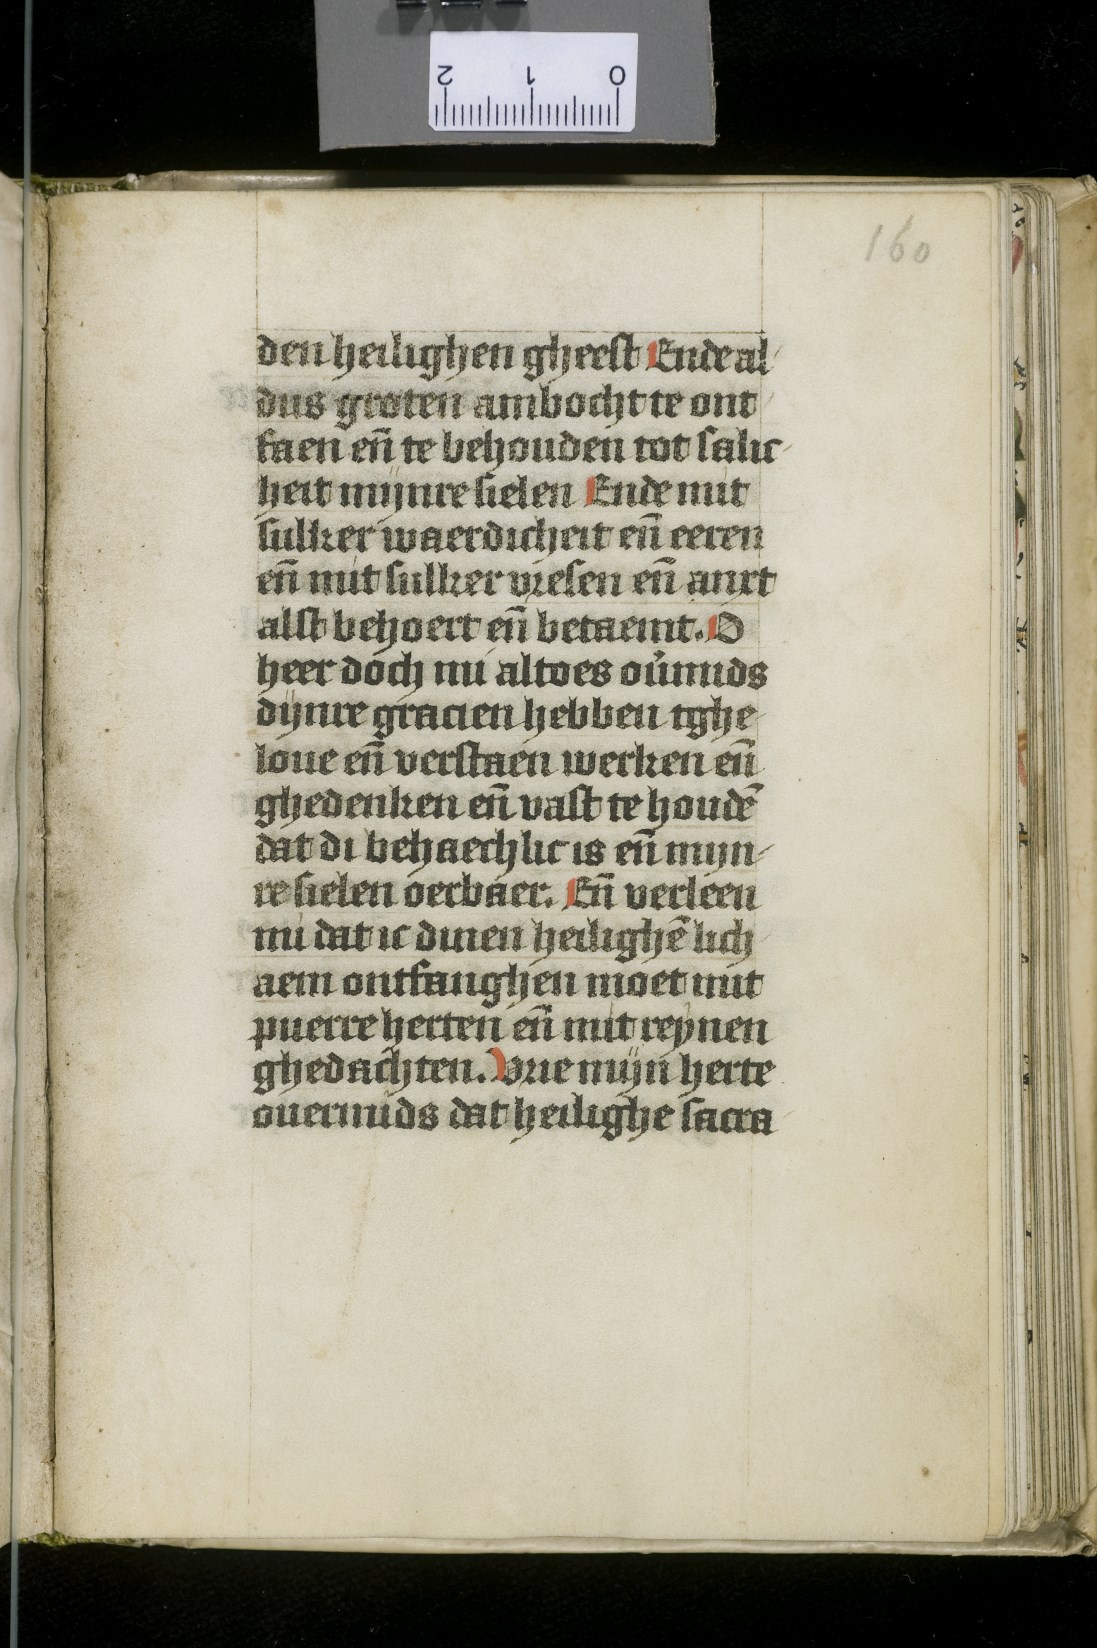 2 1 0
160
den heilighen gheest Ende al-
dus groten ambocht te ont
faen en̄ te behouden tot salic-
heit mijnre sielen Ende mit
sulker waerdicheit en̄ eeren
en̄ mit sulker vresen en̄ anxt
alst behoert en̄ betaemt. O
heer doch mi altoes ou̓mids
dijnre gracien hebben tghe-
loue en̄ verstaen werken en̄
ghedenken en̄ vast te houdē
dat di behaechlic is en̄ mijn-
re sielen oerbaer. En̄ verleen
mi dat ic dinen heilighē lich
aem ontfanghen moet mit
puerre herten en̄ mit reynen
ghedachten. Vrie mijn herte
ouermids dat heilighe sacra